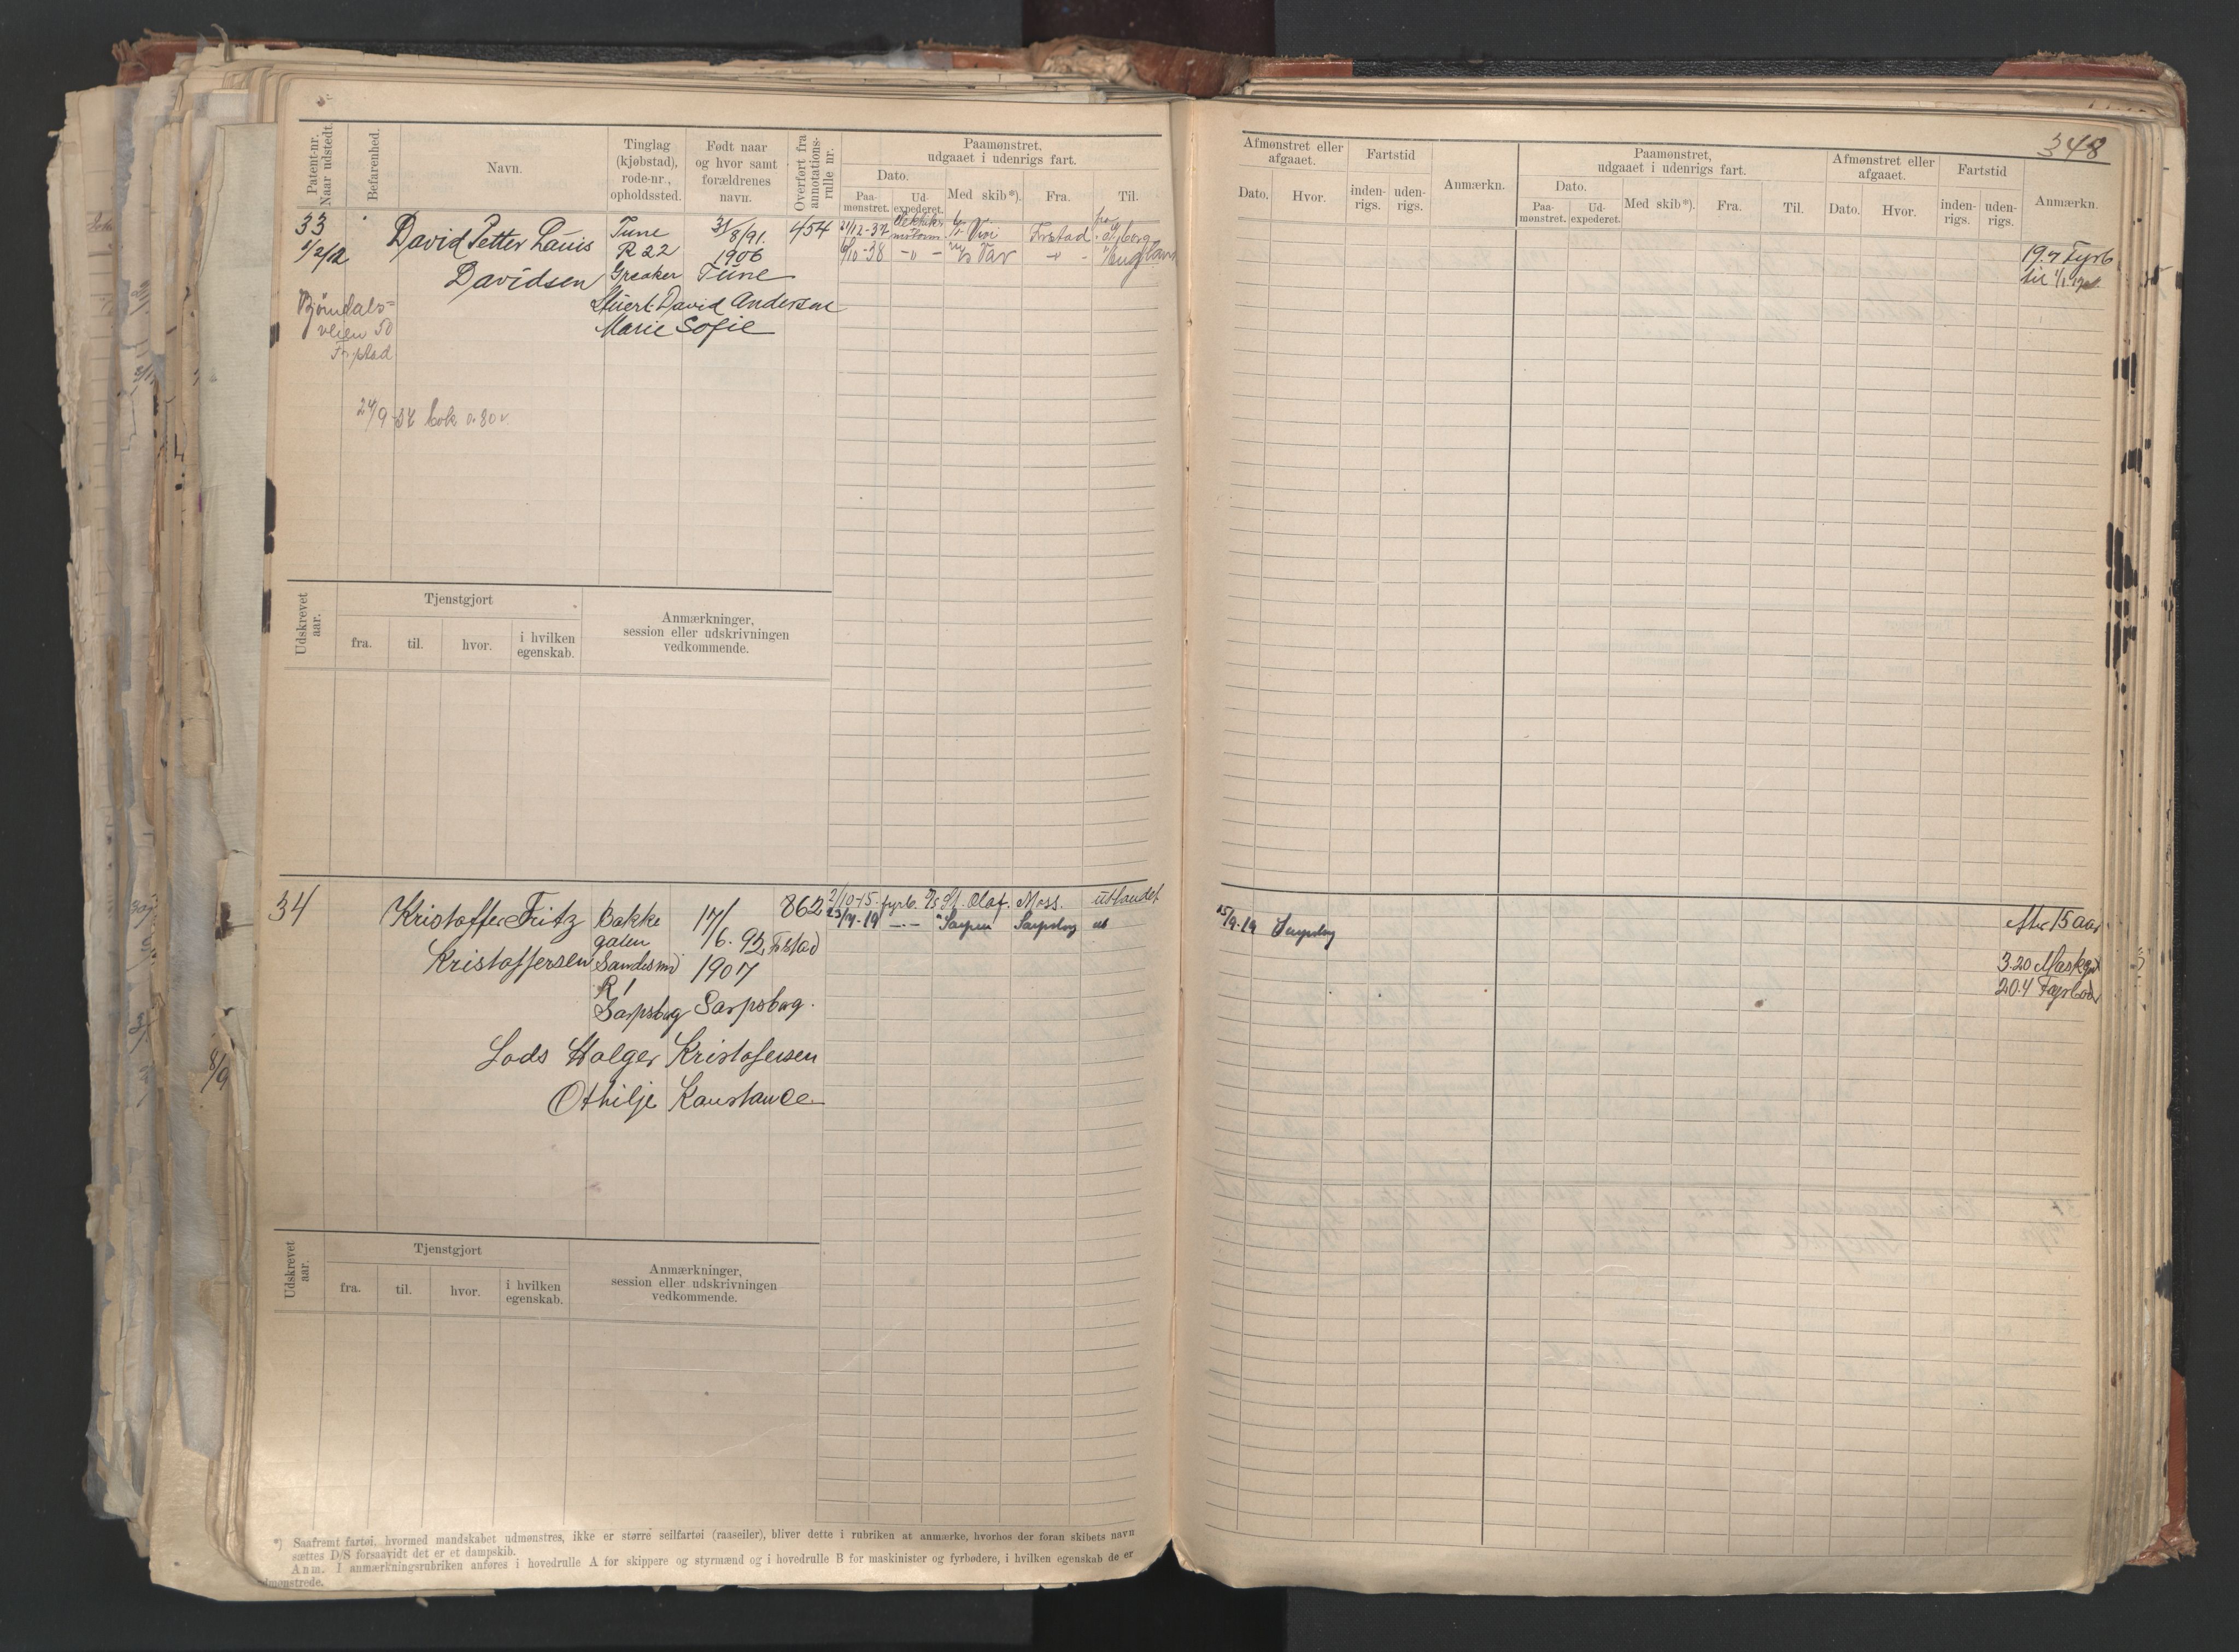 348
Patent-nr.
Naar udstedt.
Befarenhed.
Navn.
Tinglag
(kjøbstad),
rode-nr.,
opholdssted.
Født naar
og hvor samt
forældrenes
navn.
Overført fra
annotations-
rulle nr.
Paamønstret,
udgaaet i udenrigs fart.
Dato.
Paa-
mønstret.
Ud-
expederet.
Med skib*).
Fra.
Til.
Afmønstret eller
afgaaet.
Dato.
Hvor.
Fartstid
inden-
rigs.
uden-
rigs.
Anmærkn.
Paamønstret,
udgaaet i udenrigs fart.
Dato.
Paa-
mønstret.
Ud-
expederet.
Med skib*).
Fra.
Til.
Afmønstret eller
afgaaet.
Dato.
Hvor.
Fartstid
inden-
rigs.
uden-
rigs.
Anmærkn.
33
David Petter Lauis
Davidsen
Tune
R 22
Greaker
31/8/91.
1906
Tune
David Andersen
Marie Sofie
454
21/12-37
Frstad
6/10-38
Var
England
Bjørndals-
veien 50
24/9
bok
19.7 Fyrb
til
Udskrevet
aar.
Tjenstgjort
fra.
til.
hvor.
i hvilken
egenskab.
Anmærkninger,
session eller udskrivningen
vedkommende.
34
Kristoffer Fritz
Kristoffersen
Bakke
gaten
Sandesund
R 1
Sarpsbog
17/6. 92, Fstad
1907
Sarpsbog.
Lods Holger Kristofersen
Othilje Konstance
862
2/10-15. fyrb. D/S St. Olaf. Moss. utlandet
23/4-19 -"- " Sarpen Sarpsbog ut
15/9-19 Sarpsbog
15 aar
3.20 Mask
20.4 Fyrbød
Udskrevet
aar.
Tjenstgjort
fra.
til.
hvor.
i hvilken
egenskab.
Anmærkninger,
session eller udskrivningen
vedkommende.
*) Saafremt fartøi, hvormed mandskabet udmønstres, ikke er større seilfartøi (raaseiler), bliver dette i rubriken at anmærke, hvorhos der foran skibets navn
sættes D/S forsaavidt det er et dampskib.
Anm. I anmærkningsrubriken anføres i hovedrulle A for skippere og styrmænd og i hovedrulle B for maskinister og fyrbødere, i hvilken egenskab de er
dmønstrede.
8/9